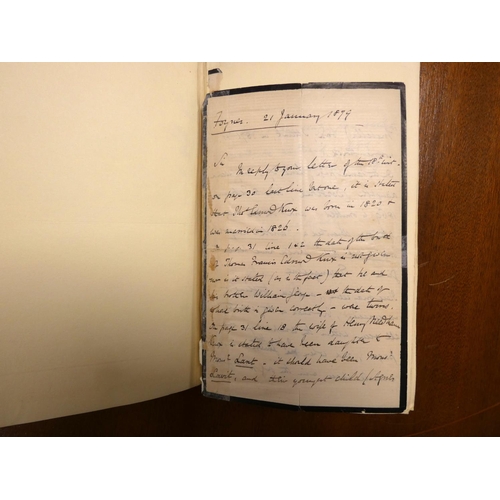 21 January 1879
Sir
In reply to your letter of the
on page 30 last line but one, it is stated
that Thos Edward was born in 1820 &
was married in 1826.
page 31 line 1 & 2 the date of the birth
of Thomas Francis Edward is not given
is stated (as is the fact) that he and
his brother William George - the date of
birth is given correctly - were twins.
In page 31 line 18, the wife of Henry
is stated to have been daughter of
Lant - it should have been
, and their youngest child